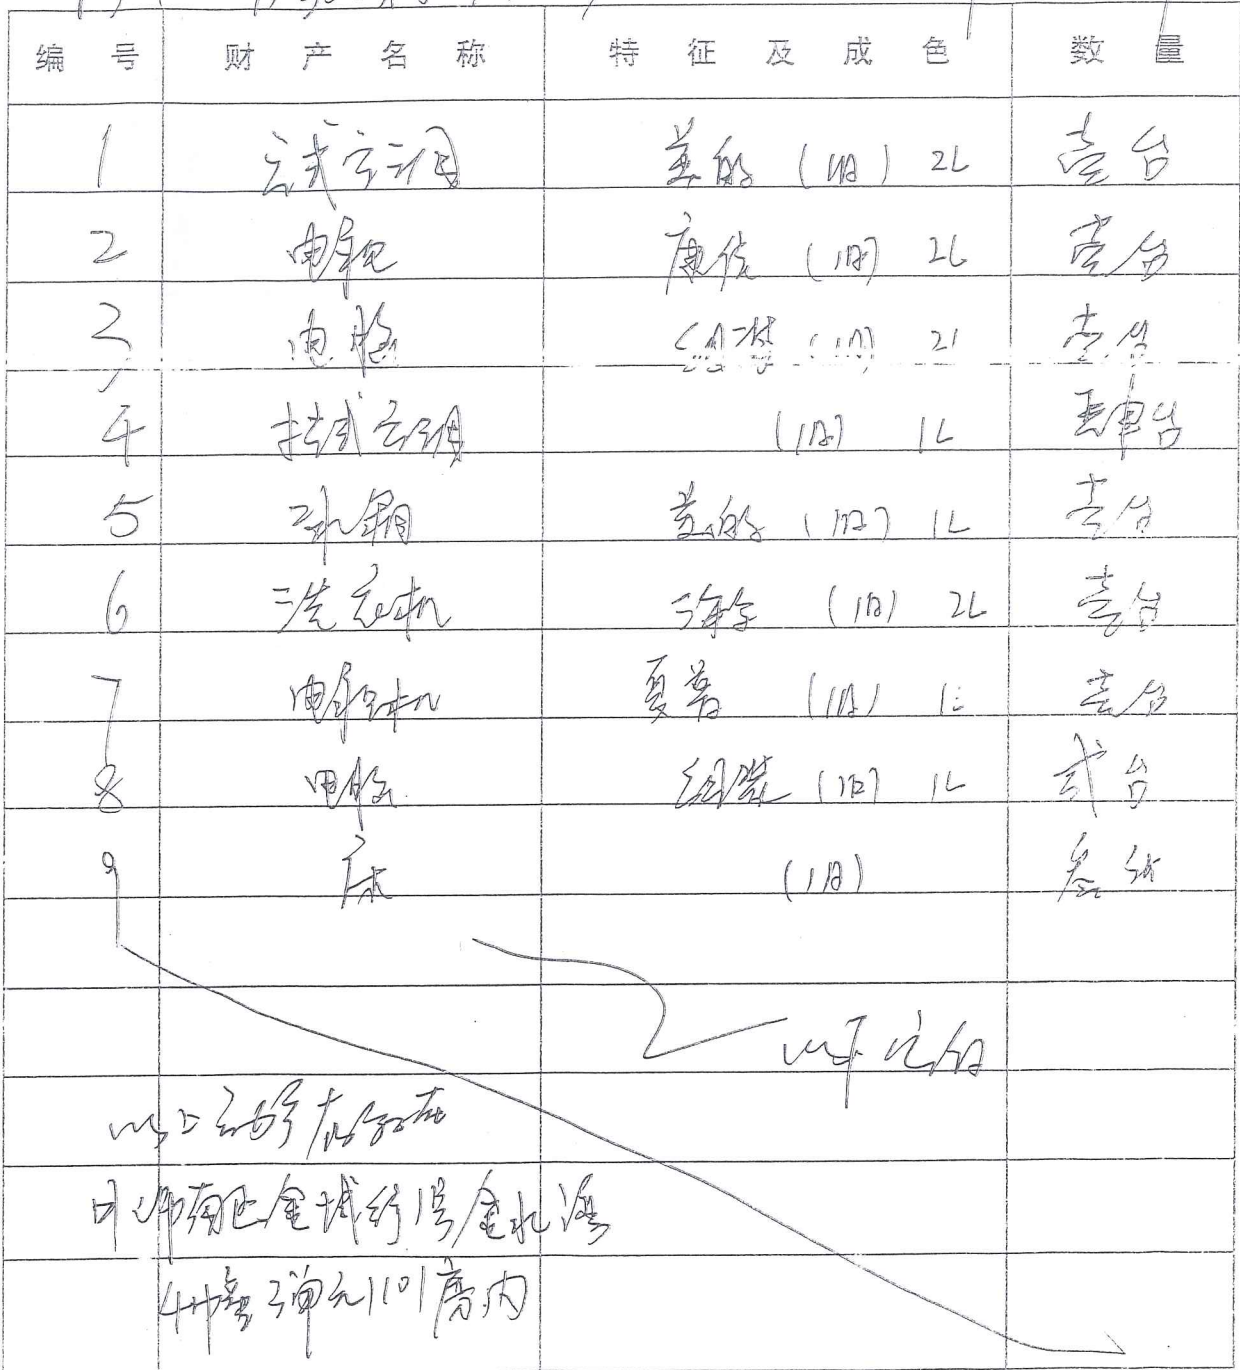 编号 财产名称 特征及成色 数量
1 立式空调 美的 (旧) 2L 壹台
2 电视 康佳 (旧) 2L 壹台
3 电脑 组装 (旧) 2L 壹台
4 挂式空调 (旧) 1L 肆台
5 冰箱 美的 (旧) 1L 壹台
6 洗衣机 海尔 (旧) 2L 壹台
7 电视机 夏普 (旧) 壹台
8 电脑 组装 (旧) 1L 弍台
9 床 (旧) 叁张
以下空白
以上
金域 1号金水湾
4幢2单元1101房内